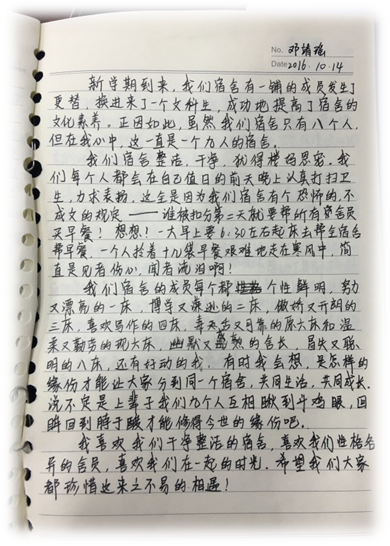 No. 邓婧瑶
Date 2016.10.14
新学期到来，我们宿舍有一铺的成员发生了
更替，换进来了一个文科生，成功地提高了宿舍的
文化素养。正因如此，虽然我们宿舍只有八个人，
但在我心中，这一直是一个九人的宿舍。
我们宿舍整洁，干净，犹得楼妈恩宠。我
们每个人都会在自己值日的前天晚上认真打扫卫
生，力求表扬，这全是因为我们宿舍有个恐怖的，不
成文的规定——谁被扣分第二天就要帮所有舍员
买早餐！想想！一大早上要6:30左右起床去帮全宿舍
带早餐，一个人拎着十几袋早餐艰难地走在寒风中，简
直是见者伤心，闻者流泪啊！
我们宿舍的成员每个都个性鲜明，努力
又漂亮的一床，博学又深沉的二床，傲娇又开朗的
三床，喜欢写作的四床，毒舌又可靠的原六床和温
柔又勤劳的现六床，幽默又高挑的舍长，呆故又聪
明的八床，还有好动的我。有时我会想，是怎样的
缘份才能让大家分到同一个宿舍，共同生活，共同成长。
说不定是上辈子我们九个人互相瞅到斗鸡眼，回
眸回到脖子酸才能修得今世的缘份吧。
我喜欢我们干净整洁的宿舍，喜欢我们性格各
异的舍员，喜欢我们在一起的时光，希望我们大家
都珍惜这来之不易的相遇！